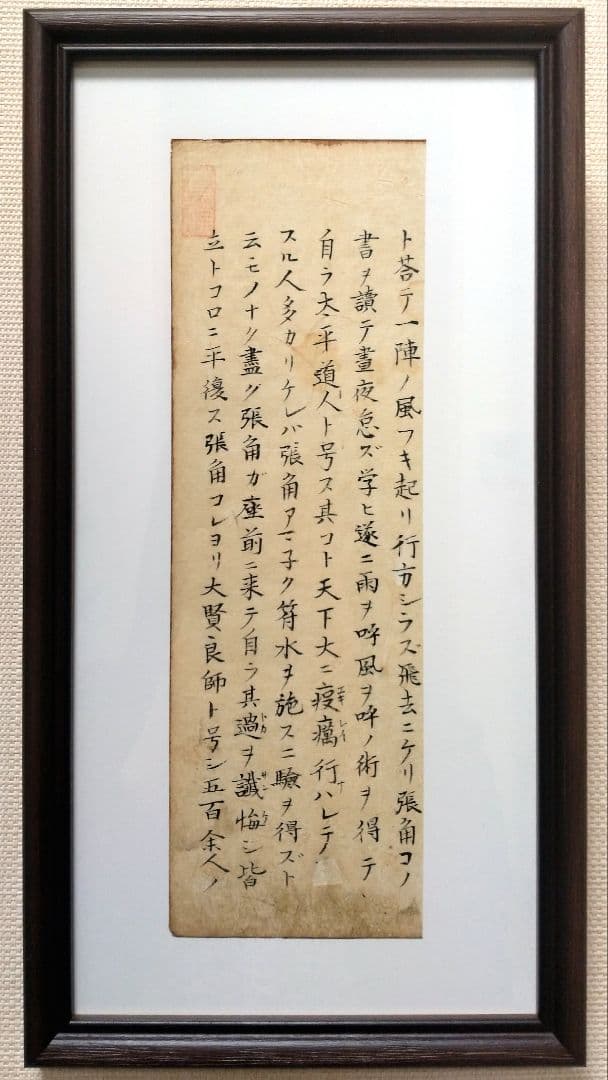 ト荅テ一陣ノ風フキ起リ行方シラズ飛去ニケリ張角コノ
書ヲ讀テ晝夜怠ズ学ヒ遂ニ雨ヲ呼風ヲ呼ノ術ヲ得テ、
自ラ太平道人ト号ス其コト天下大ニ疫癘行ハレテ
スル人多カリケレバ張角アマ子ク符水ヲ施スニ驗ヲ得ズト
云モノナク盡ク張角ガ座前ニ来テ自ラ其過ヲ讖悔シ皆
立トコロニ平復ス張角コレヨリ大賢良師ト号シ五百余人ノ